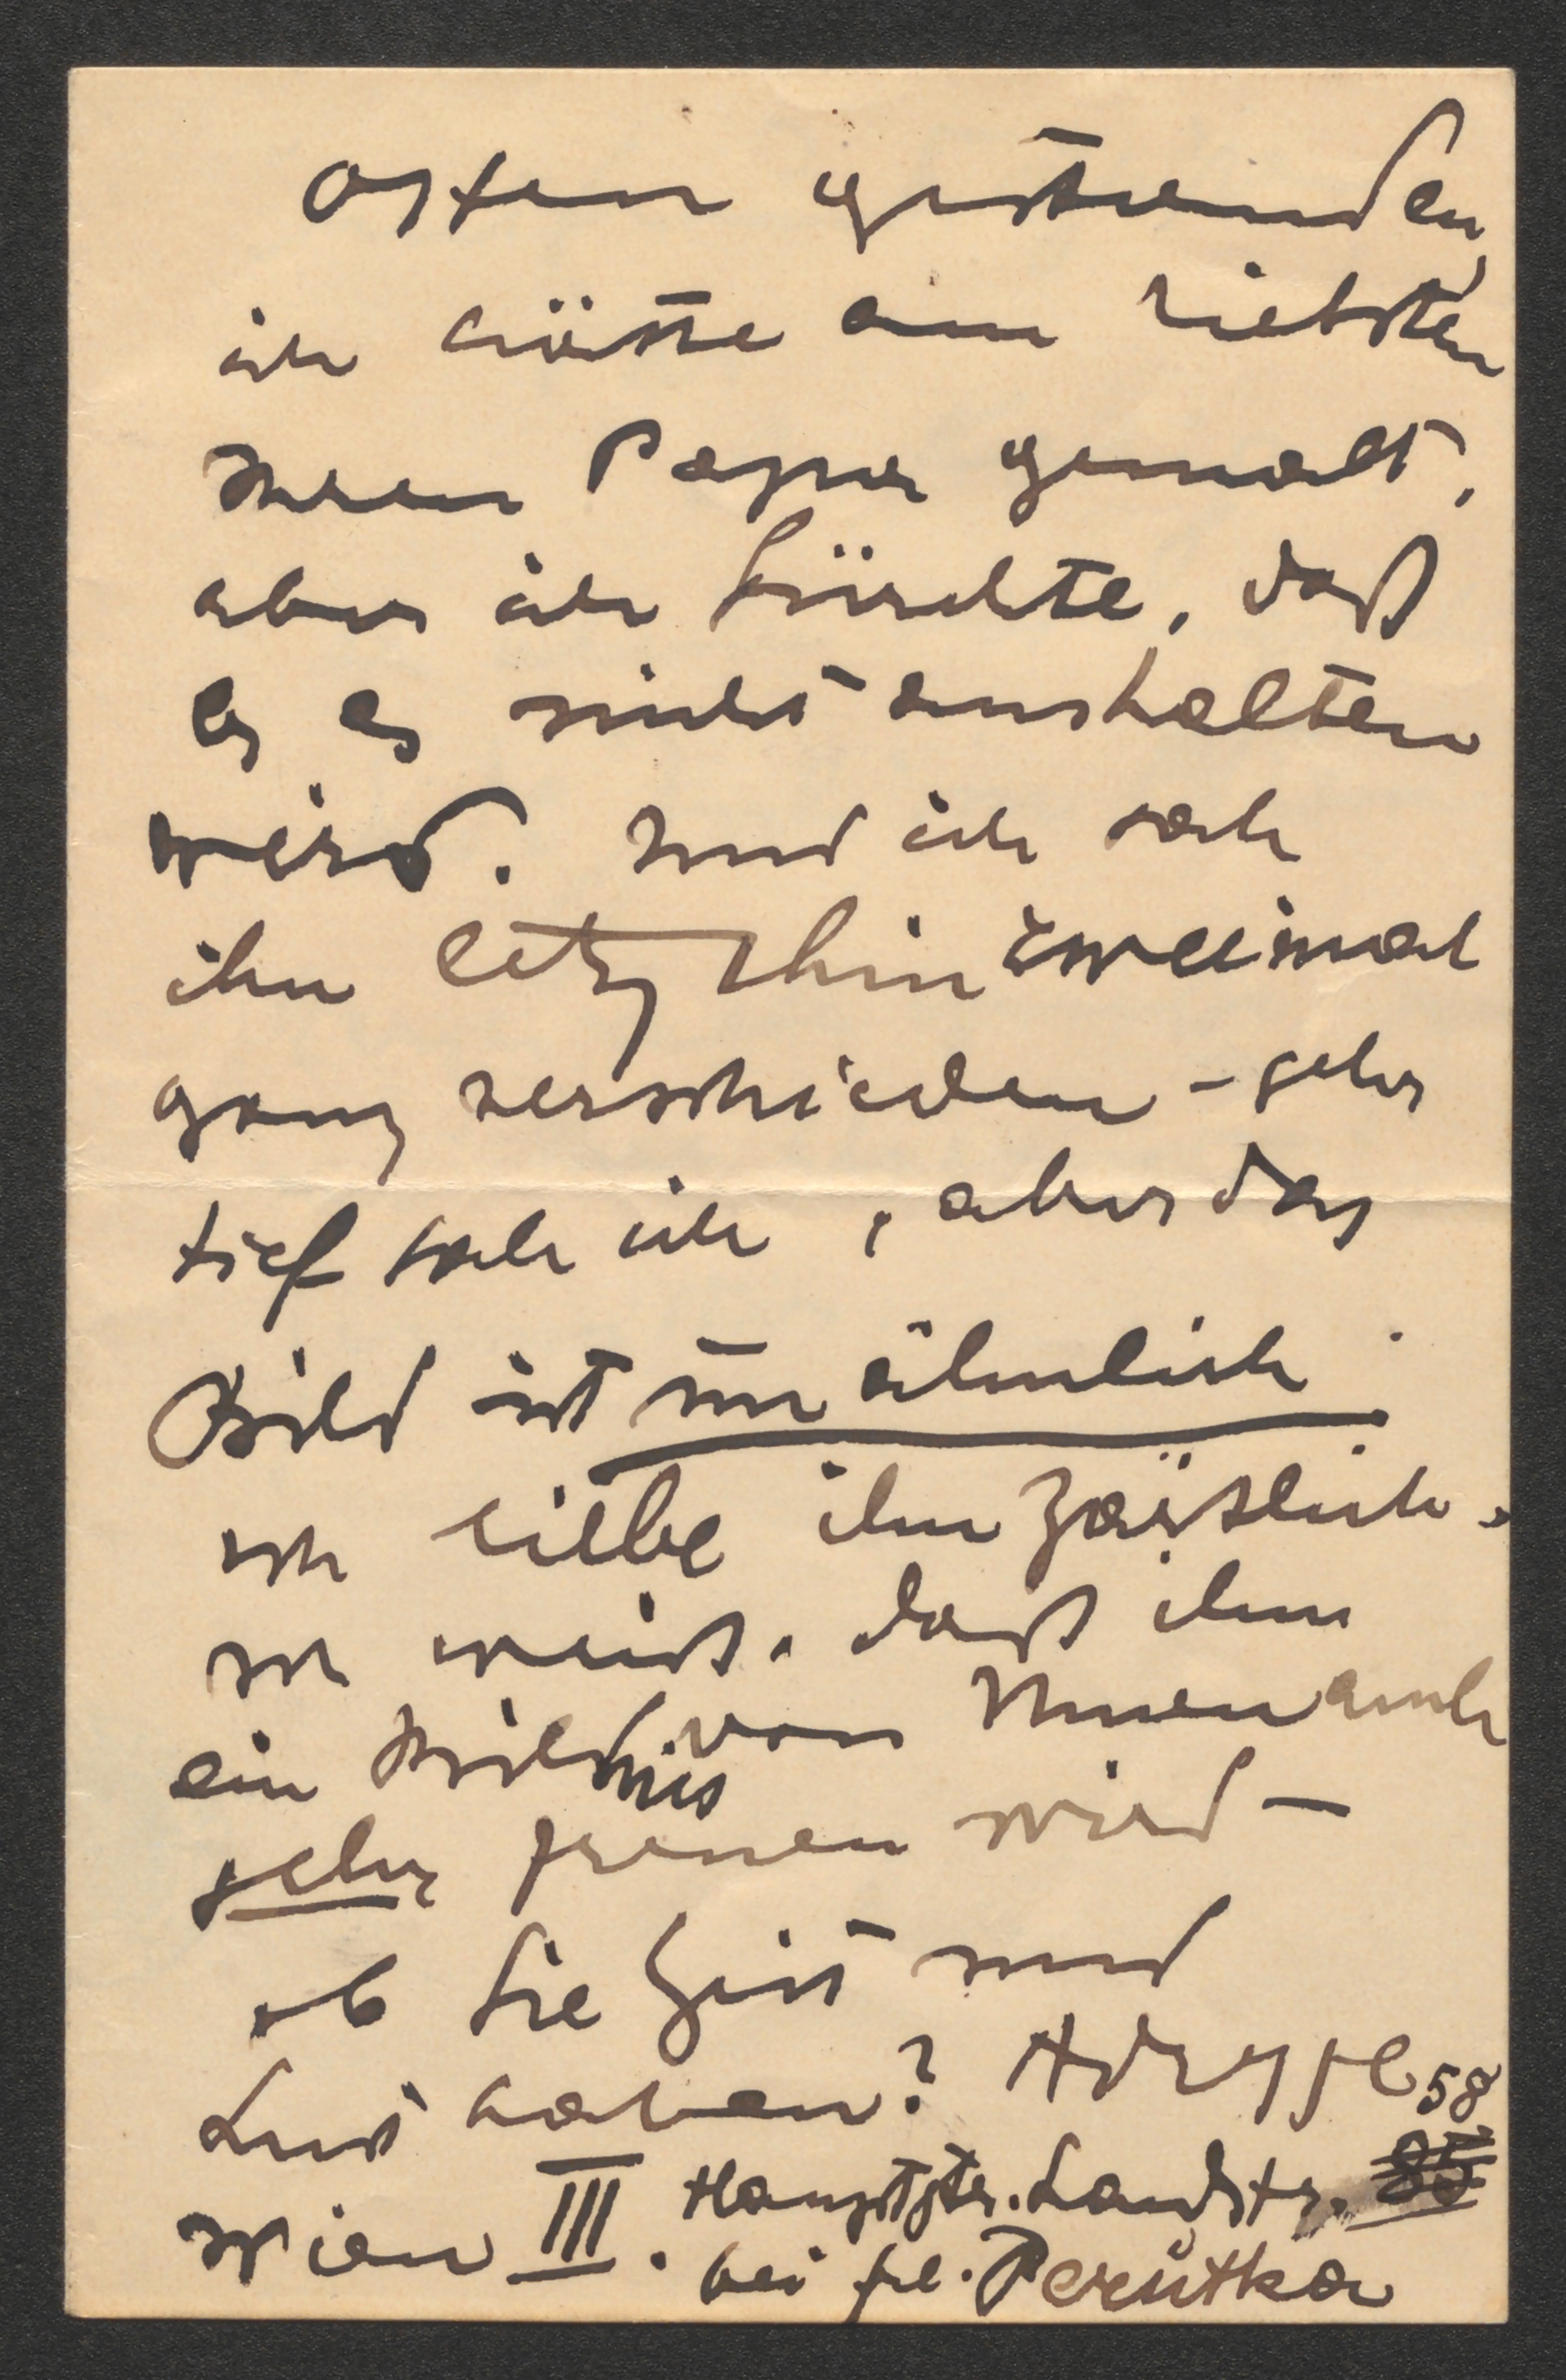 offen gestanden
ich hätte am liebsten
Ihren Papa gemalt,
aber ich fürchte, daß
Er es nicht aushalten
wird. Und ich sah
ihn letzthin zweimal
ganz verschieden – sehr
tief sah ich, aber das
Bild ist unähnlich.
Ich liebe ihn zärtlich.
Ich weiß, daß ihm
ein Bildnis von Ihnen auch
sehr freuen wird –
ob Sie Zeit und
Lust haben? Adresse 58
Wien III. Hauptstr. Landstr. 85
bei Frl. Perutka